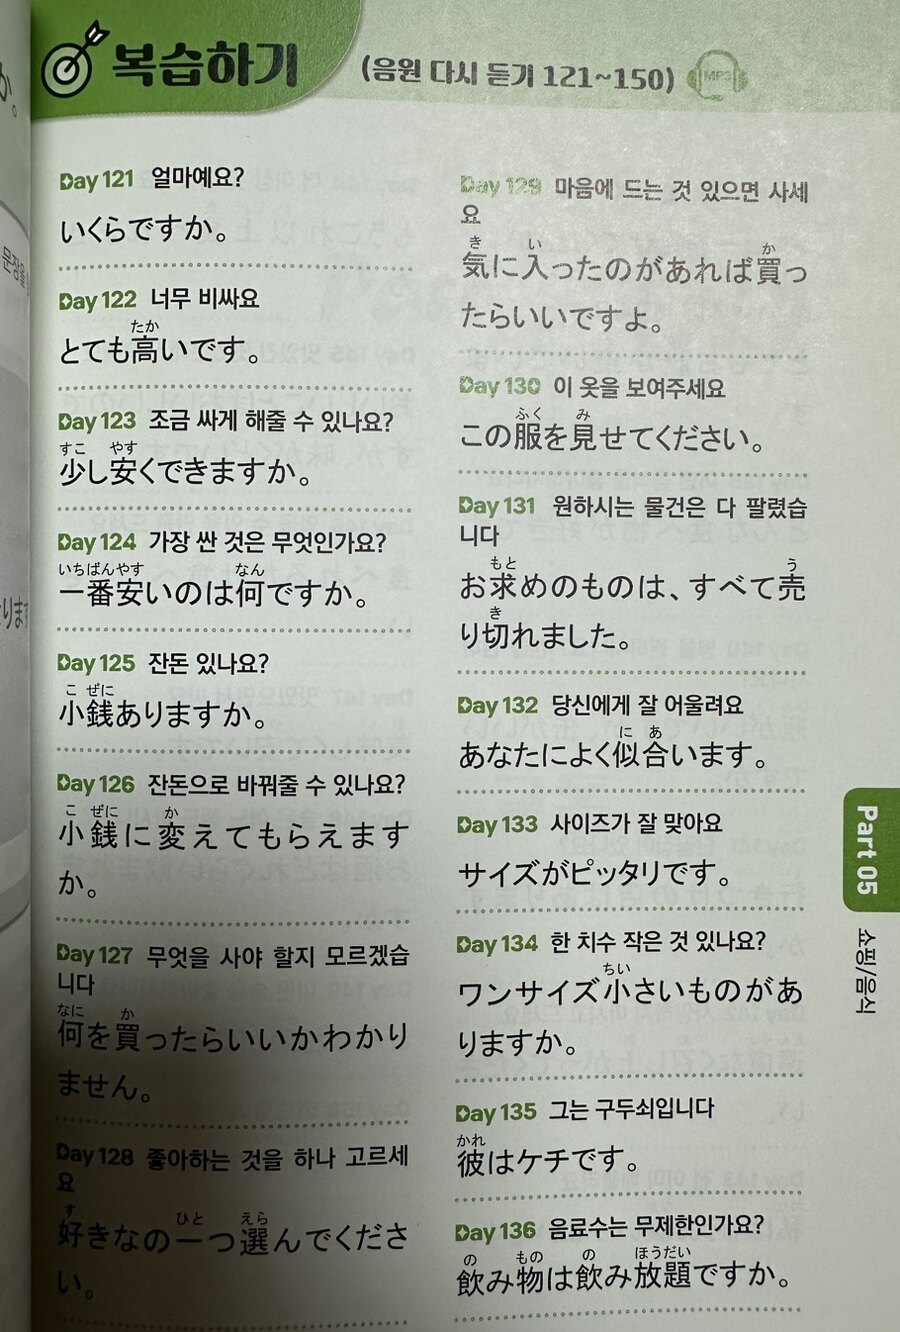 복습하기 (음원 다시 듣기 121~150) MP3
Day 121 얼마예요?
いくらですか。
Day 122 너무 비싸요
たか
とても高いです。
Day 123 조금 싸게 해줄 수 있나요?
すこ やす
少し安くできますか。
Day 124 가장 싼 것은 무엇인가요?
いちばんやす なん
一番安いのは何ですか。
Day 125 잔돈 있나요?
こ ぜに
小銭ありますか。
Day 126 잔돈으로 바꿔줄 수 있나요?
こ ぜに か
小銭に変えてもらえます
か。
Day 127 무엇을 사야 할지 모르겠습
니다
なに か
何を買ったらいいかわかり
ません。
Day 128 좋아하는 것을 하나 고르세
요
す ひと えら
好きなの一つ選んでくださ
い。
Day 129 마음에 드는 것 있으면 사세
요
き い か
気に入ったのがあれば買っ
たらいいですよ。
Day 130 이 옷을 보여주세요
ふく み
この服を見せてください。
Day 131 원하시는 물건은 다 팔렸습
니다
もと う
お求めのものは、すべて売
き
り切れました。
Day 132 당신에게 잘 어울려요
に あ
あなたによく似合います。
Day 133 사이즈가 잘 맞아요
サイズがピッタリです。
Day 134 한 치수 작은 것 있나요?
ちい
ワンサイズ小さいものがあ
りますか。
Day 135 그는 구두쇠입니다
かれ
彼はケチです。
Day 136 음료수는 무제한인가요?
の もの の ほうだい
飲み物は飲み放題ですか。
Part 05
쇼핑/음식